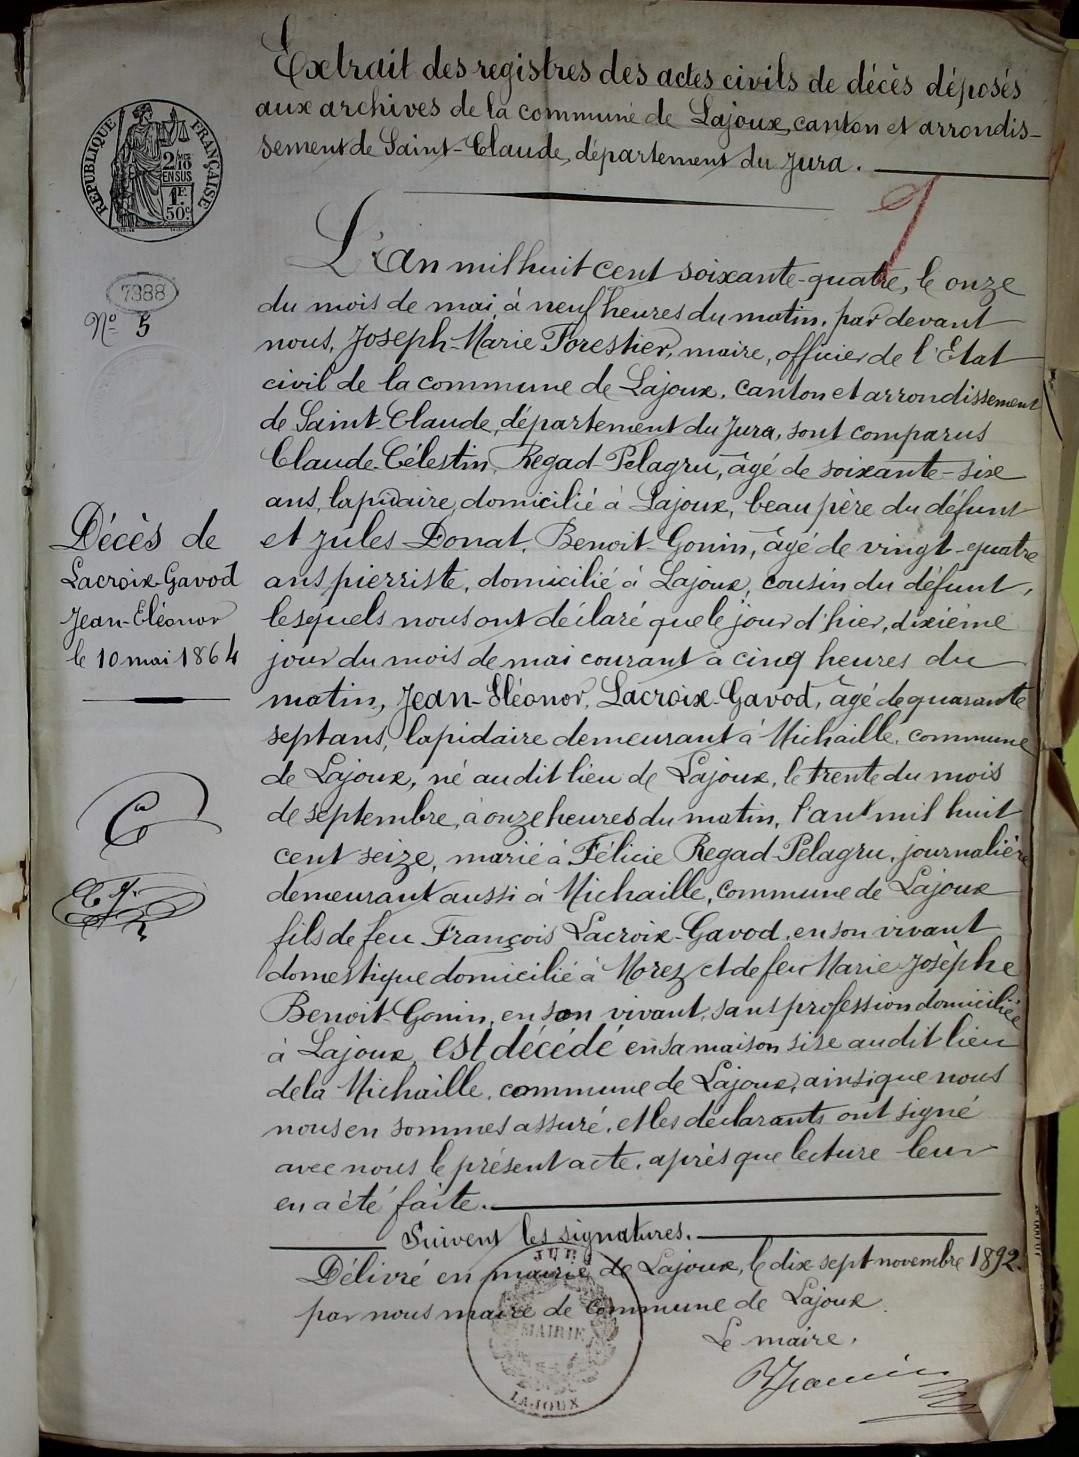 Extrait des registres des actes civils de décès déposés
aux archives de la commune de Lajoux, canton et arrondis-
sement de Saint-Claude, département du Jura.
RÉPUBLIQUE FRANÇAISE
2/10
EN SUS
1F.
50c
7388
No 5
L'an mil huit cent soixante-quatre, le onze
du mois de mai, à neuf heures du matin, par devant
nous, Joseph-Marie Forestier, maire, officier de l'Etat
civil de la commune de Lajoux, canton et arrondissement
de Saint-Claude, département du Jura, sont comparus
Claude-Célestin, Regad-Pelagru, âgé de soixante-six
ans, lapidaire, domicilié à Lajoux, beau père du défunt
et Jules Donat, Benoit-Gonin, âgé de vingt-quatre
ans, pierriste, domicilié à Lajoux, cousin du défunt,
lesquels nous ont déclaré que le jour d'hier, dixième
jour du mois de mai courant à cinq heures du
matin, Jean-Eléonor, Lacroix-Gavod, âgé de quarante
sept ans, lapidaire demeurant à Michaille, commune
de Lajoux, né au dit lieu de Lajoux, le trente du mois
de septembre, à onze heures du matin, l'an mil huit
cent seize, marié à Félicie Regad-Pelagru, journalière
demeurant aussi à Michaille, commune de Lajoux
fils de feu François Lacroix-Gavod, en son vivant
domestique domicilié à Morez et de feu Marie-Josèphe
Benoit-Gonin, en son vivant, sans profession domiciliée
à Lajoux, est décédé en sa maison sise au dit lieu
de la Michaille, commune de Lajoux, ainsi que nous
nous en sommes assuré, et les déclarants ont signé
avec nous le présent acte, après que lecture leur
en a été faite.
Suivent les signatures.
Délivré en mairie de Lajoux, le dix sept novembre 1892.
par nous maire de commune de Lajoux.
Le maire,
Décès de
Lacroix-Gavod
Jean-Eléonor
le 10 mai 1864
JURA
MAIRIE
LAJOUX